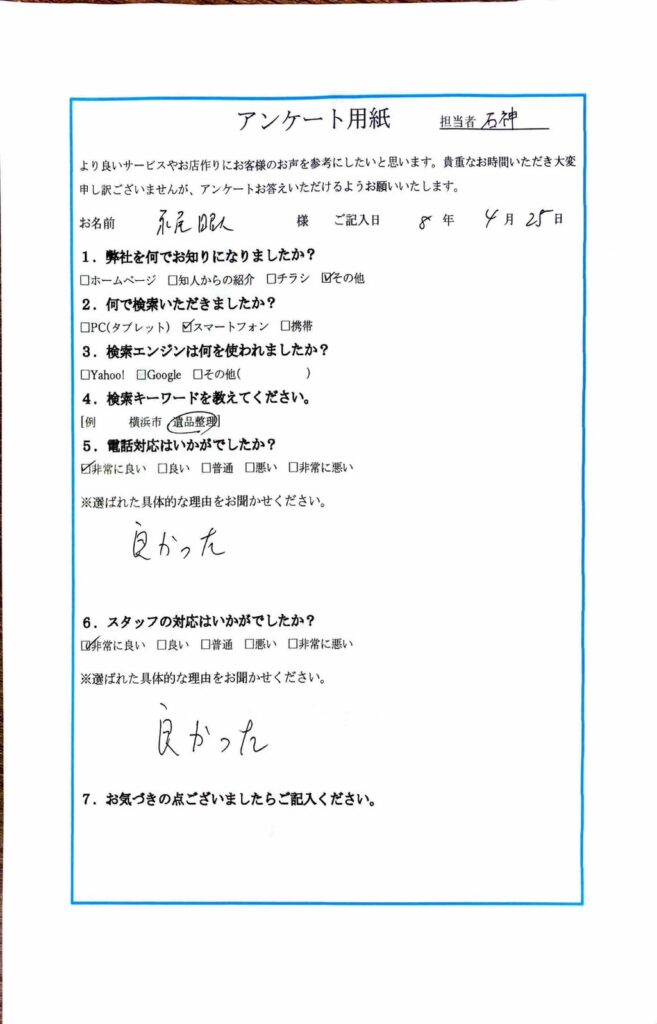 アンケート用紙 担当者 石神
より良いサービスやお店作りにお客様のお声を参考にしたいと思います。貴重なお時間いただき大変
申し訳ございませんが、アンケートお答えいただけるようお願いいたします。
お名前 様 ご記入日 8 年 4 月 25 日
1．弊社を何でお知りになりましたか？
□ホームページ □知人からの紹介 □チラシ ☑その他
2．何で検索いただきましたか？
□PC(タブレット) ☑スマートフォン □携帯
3．検索エンジンは何を使われましたか？
□Yahoo! □Google □その他( )
4．検索キーワードを教えてください。
[例 横浜市 遺品整理]
5．電話対応はいかがでしたか？
☑非常に良い □良い □普通 □悪い □非常に悪い
※選ばれた具体的な理由をお聞かせください。
良かった
6．スタッフの対応はいかがでしたか？
☑非常に良い □良い □普通 □悪い □非常に悪い
※選ばれた具体的な理由をお聞かせください。
良かった
7．お気づきの点ございましたらご記入ください。